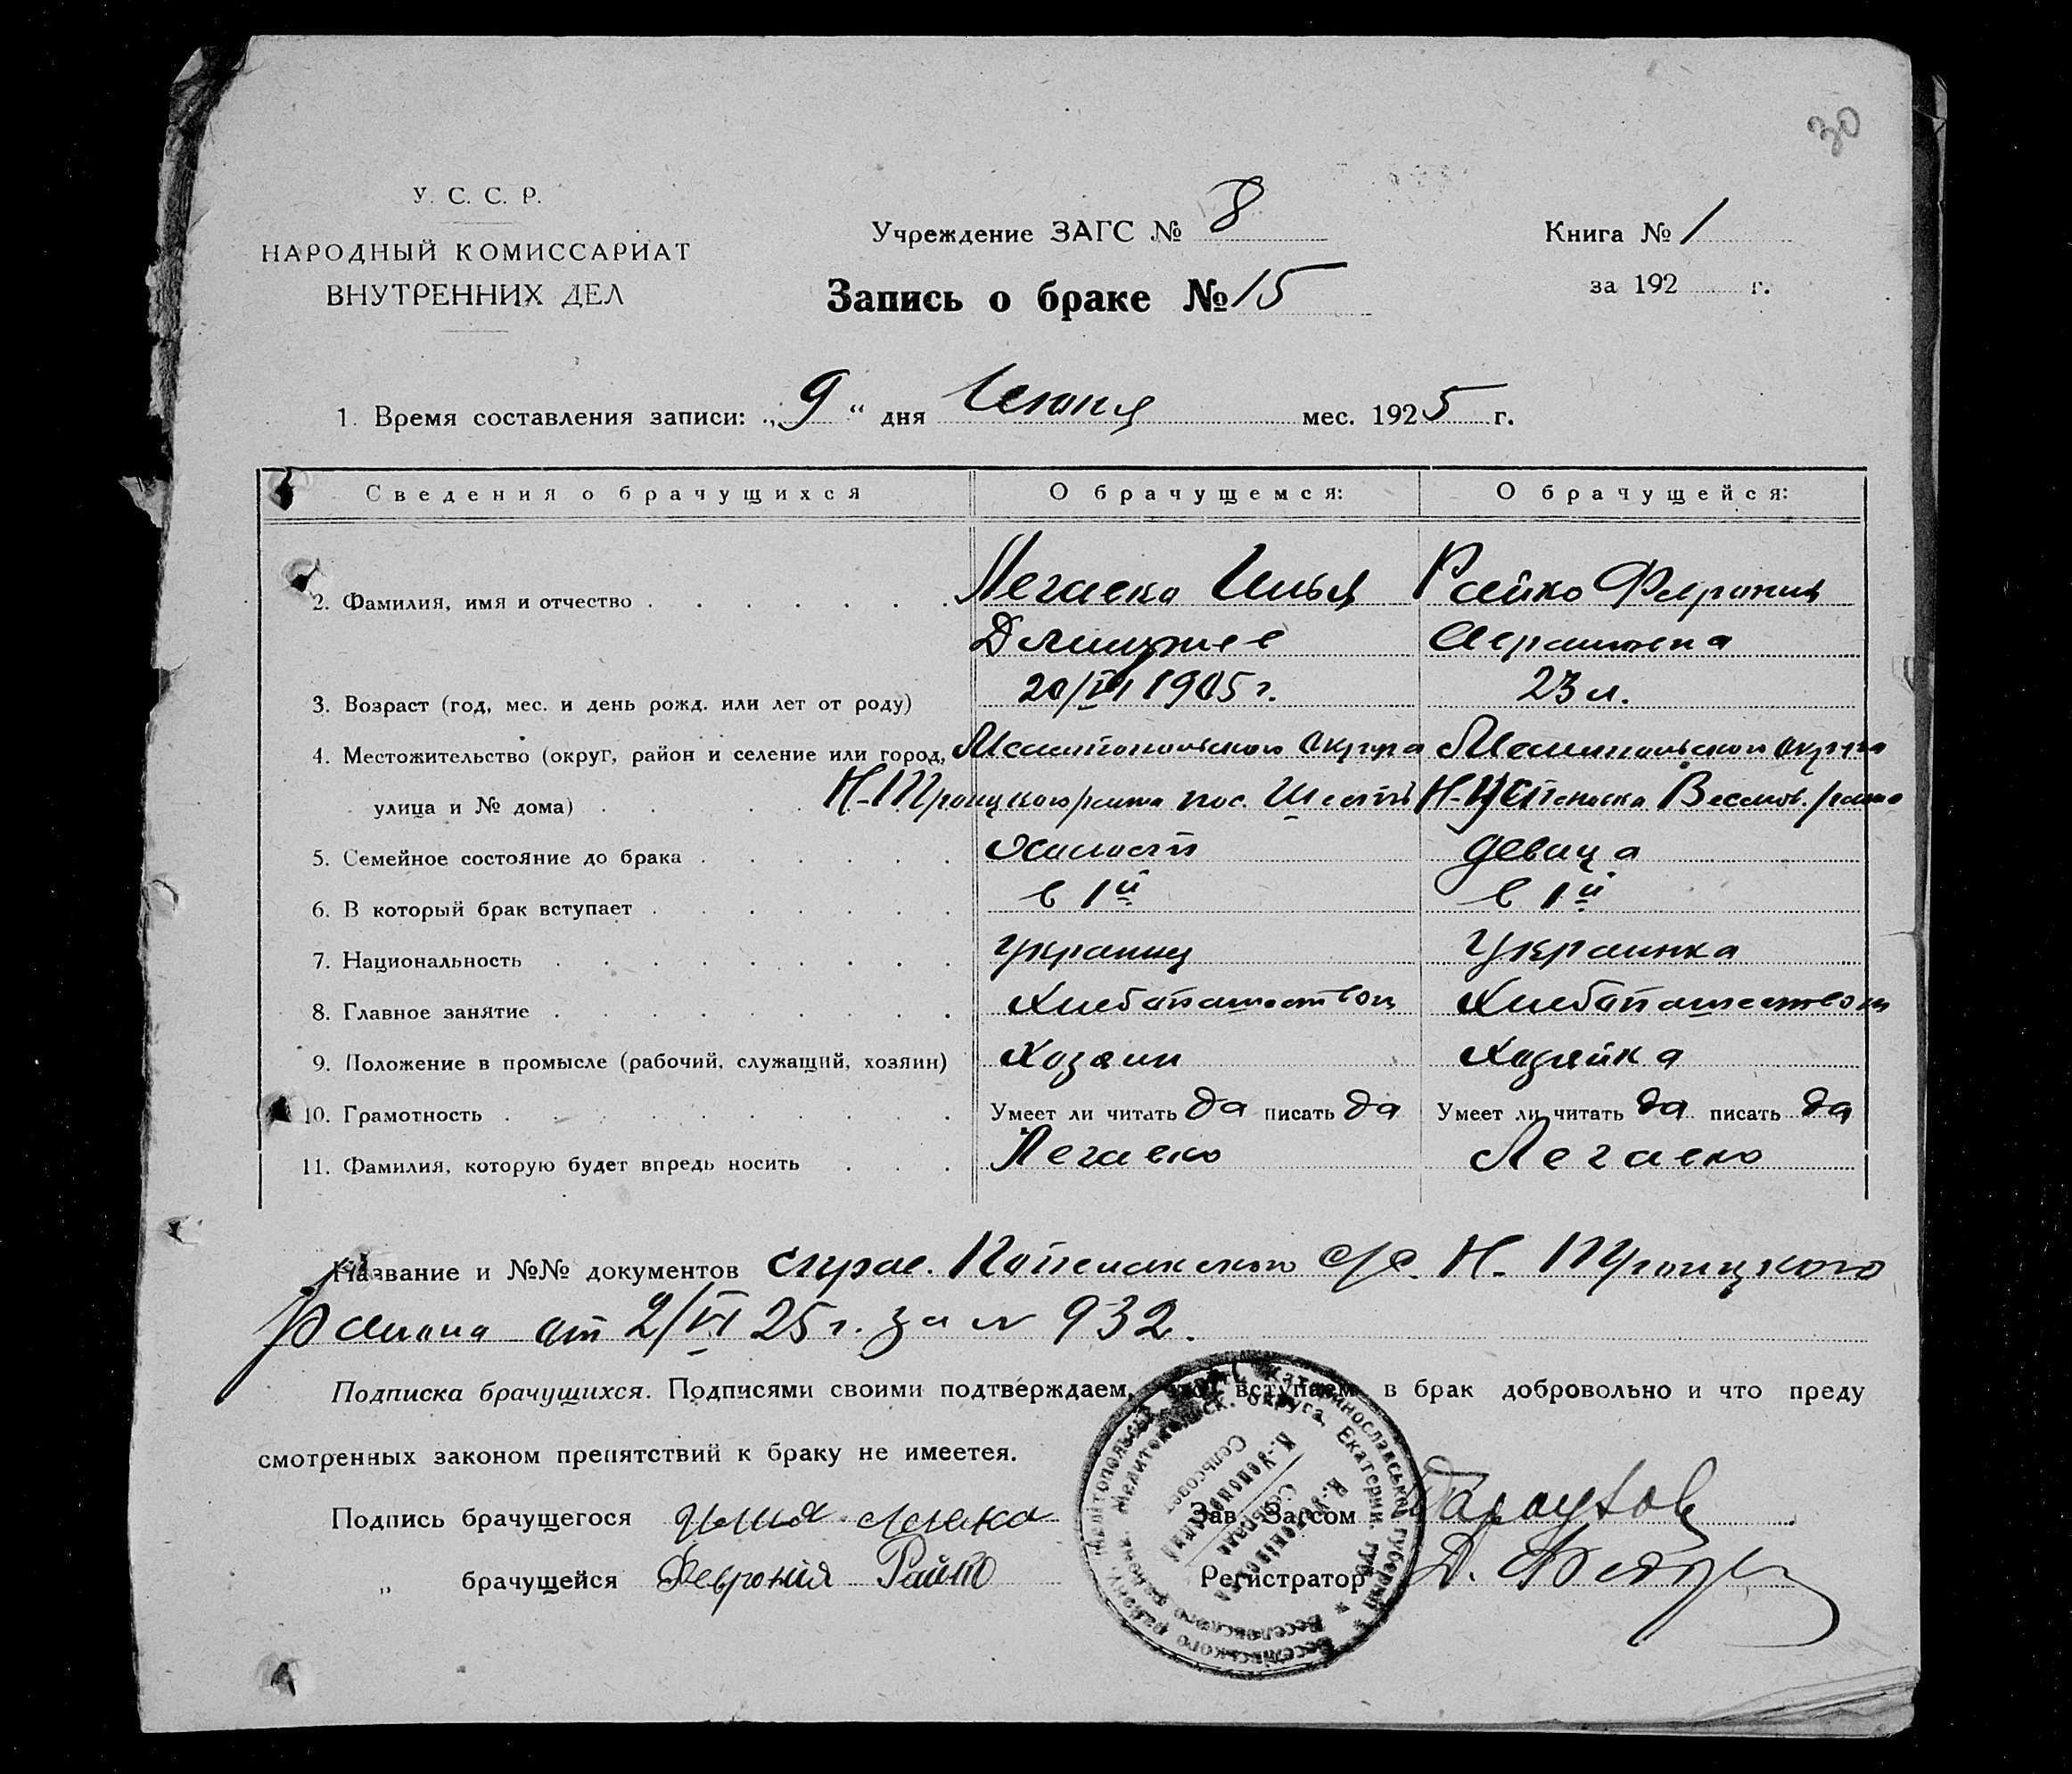 30
У. С. С. Р.
НАРОДНЫЙ КОМИССАРИАТ
ВНУТРЕННИХ ДЕЛ
Учреждение ЗАГС № 8
Книга № 1
за 192 г.
Запись о браке № 15
1. Время составления записи: „ 9 “ дня Июня мес. 1925 г.
Сведения о брачущихся О брачущемся: О брачущейся:
2. Фамилия, имя и отчество Илья Райко Феврония
3. Возраст (год, мес. и день рожд. или лет от роду) 1905 г. 23 л.
4. Местожительство (округ, район и селение или город, Мелитопольского округа Мелитопольского округа
улица и № дома) Н-Троицкого района пос. Н-Успеновка Веселов. района
5. Семейное состояние до брака холост девица
6. В который брак вступает в 1й в 1й
7. Национальность украинец Украинка
8. Главное занятие Хлебопашеством Хлебопашеством
9. Положение в промысле (рабочий, служащий, хозяин) Хозяин Хозяйка
10. Грамотность Умеет ли читать да писать да Умеет ли читать да писать да
11. Фамилия, которую будет впредь носить
Название и №№ документов справ. с/с. Н. Троицкого
района от 2/VI 25 г. за № 932.
Подписка брачущихся. Подписями своими подтверждаем, что вступаем в брак добровольно и что преду
смотренных законом препятствий к браку не имеется.
Подпись брачущегося Зав. Загсом
„ брачущейся Феврония Райко Регистратор Д.
Мелитопольск. округа, Екатерин. губ.
Веселовского района
Н.-Успеновский
Сельсовет